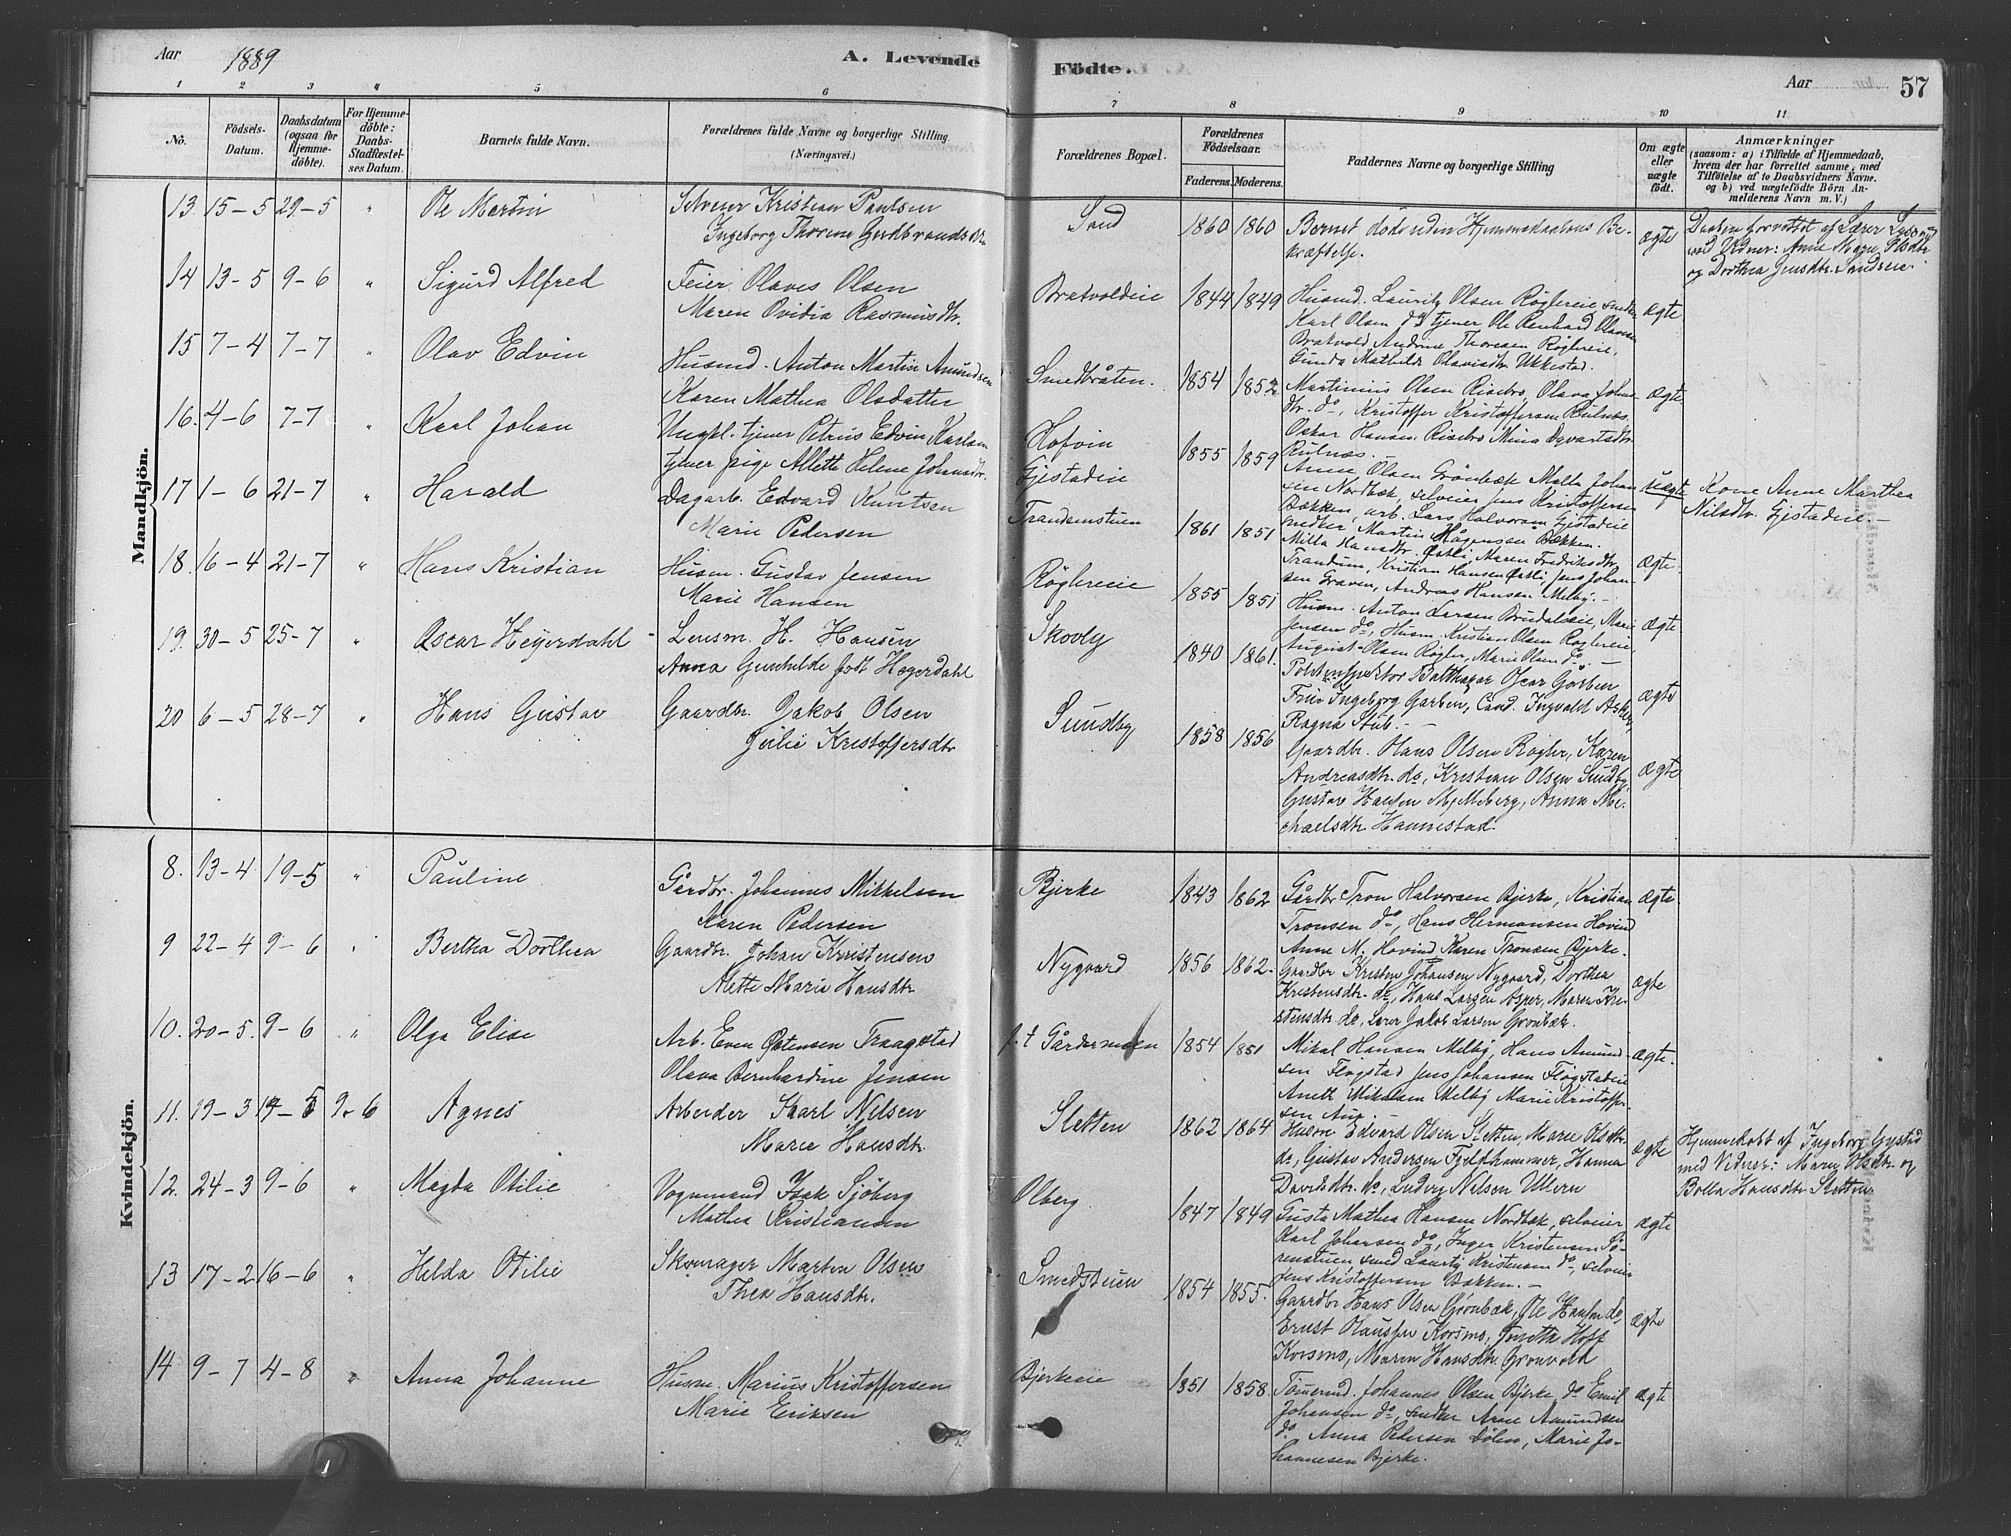 Aar 1889
A. Levende
Födte.
Aar
57
1 2 3 4 5 6 7 8 9 10 11
No.
Födsels-Datum.
Daabsdatum (ogsaa for Hjemmedöbte).
For Hjemmedöbte: Daabs-Stadfæstelses Datum.
Barnets fulde Navn.
Forældrenes fulde Navne og borgerlige Stilling
(Næringsvei.)
Forældrenes Bopæl.
Forældrenes Födselsaar.
Faderens. Moderens.
Faddernes Navne og borgerlige Stilling
Om ægte eller uægte födt.
Anmærkninger
(saasom: a) i Tilfælde af Hjemmedaab, hvem der har forrettet samme, med Tilföielse af to Daabsvidners Navne. og b) ved uægtefödte Börn Anmelderens Navn m. V.)
Mandkjön.
13. 15-5 29-5 " Ole Martin
Selveier Kristian Paulsen
Ingeborg Thorine Gudbrandsdtr
Sand 1860 1860
Barnet døde uden Hjemmedaabens Be-
kræftelse.
ægte
Daaben forrettet af Lærer
med Vidner: Anne
og Dorthea Jensdtr. Sandseie.
14 13-5 9-6 " Sigurd Alfred
Feier Olaves Olsen
Maren Ovidia Rasmusdtr.
Bratvoldeie 1844 1849
Husmd. Lauritz Olsen Røglereie, smeder
Karl Olsen do, tjener Ole Renhard Olavesen
Bratvold, Andrine Thoresen Røglereie,
Gunda Mathilde Olavesdtr Ukkestad.
ægte
15 7-4 7-7 " Olav Edvin
Husmd. Anton Martin Amundsen
Karen Mathea Olsdatter
Smedbråten. 1854 1852
Martinius Olsen Risebro, Olava Johns-
dtr. do, Kristoffer Kristoffersen Kulnes.
Oskar Hansen Risebro Mina
Kulnæs.
ægte
16. 4-6 7-7 " Karl Johan
Ungkl. tjener Petrus Edvin Karlsen
tjener pige Allette Helene Johnsdtr.
Hofvin
Gjestadeie
1855 1859
Anne Olsen Grønbæk Malla Johan-
sen Nordbæk, selveier Jens Kristoffersen
Bækken, arb. Lars Halvorsen Gjestadeie
uægte
Kone Anne Marthea
Nilsdtr. Gjestadeie.-
17 1-6 21-7 " Harald
Dagarb. Edvard Knutsen
Marie Pedersen
Trandemstuen 1861 1851
snedker Martin Hågensen Bækken.
Milla Hansdtr. Østli, Maren Fredriksdtr
Trandum, Kristian Hansen Østli, Jens Johan-
sen Graven, Andreas Hansen Melby.-
ægte.
18. 16-4 21-7 " Hans Kristian
Husm. Gustav Jensen
Marie Hansen
Røglereie 1855 1851
Husm. Anton Larsen Brudaleie, Marie
Jensen do, Husm. Kristian Olsen Røglereie,
August Olsen Røgler, Marie Olsen do.
ægte.
19. 30-5 25-7 " Oscar Heyerdahl
Lensm. H. Hansen
Anna Gunhilde født Heyerdahl
Skovly 1840 1861.
Politinspektør Balthazar Oscar Garben
Frue Ingeborg Garben, Cand. Ingvald
Ragna Stub.-
ægte
20 6-5 28-7 " Hans Gustav
Gaardbr. Jakob Olsen
Julie Kristoffersdtr
Sundby 1858 1856
Gaardbr. Hans Olsen Røgler, Karen
Andreasdtr. do, Kristian Olsen Sundby,
Gustav Hansen Mjelleberg, Anna Mi-
chaelsdtr. Hannestad.
ægte
Kvindekjön.
8. 13-4 19-5 " Pauline
Gårdbr. Johannes Mikkelsen
Karen Pedersen
Bjerke 1843 1862
Gårdbr Tron Halvorsen Bjerke, Kristian
Tronsen do, Hans Hermansen Hovind
Anne M. Hovind Karen Tronsen Bjerke.
ægte
9 22-4 9-6 " Bertha Dorthea
Gaardbr. Johan Kristensen
Alette Marie Hansdtr
Nygaard 1856 1862.
Gaardbr Kristen Johansen Nygaard, Dorthea
Kristensdtr. do, Hans Larsen Asper, Maren Kri-
stensdtr. do, Lærer Jakob Larsen Grønbæk.
ægte
10. 20-5. 9-6 " Olga Elise
Arb. Even Østensen Traagstad
Olava Bernhardine Jensen
p.t Gårdermoen 1854 1851
Mikal Hansen Melby, Hans Amund-
sen Flogstad Jens Johansen Flogstadeie
Anette Mikalsen Melby Marie Kristoffer-
sen Aur.
ægte.
11. 19-3 19-5 9-6 Agnes
Arbeider Karl Nilsen
Marie Hansdtr.
Sletten 1862 1864
Husm Edvard Olsen Sletten, Marie Olsdtr.
do, Gustav Andersen Fjeldhammer, Hanna
Davidsdtr. do, Ludvig Nilsen Ullern
ægte
Hjemmedøbt af Ingeborg Gystad
med Vidner: Maren Olsdtr. og
Bolla Hansdtr Sletten
12. 24-3 9-6 " Magda Otilie
Vognmand Isak Sjöberg
Mathea Kristiansen
Olberg 1847 1849
Gusta Mathea Hansen Nordbæk, selveier
Karl Johansen do, Inger Kristensen Sö-
renstuen smed Lauritz Kristensen do, selveier
Jens Kristoffersen Bækken.-
ægte
13 17-2 16-6 " Hilda Otilie
Skomager Marten Olsen
Thea Hansdtr.
Smedstuen 1854 1855.
Gaardbr Hans Olsen Grønbæk, Ole Hansen do,
Ernst Olaussen Korsmo, Tonetta Hoff
Korsmo, Maren Hansdtr. Grønvold
ægte
14. 9-7 4-8 " Anna Johanne
Husm. Marius Kristoffersen
Marie Eriksen
Bjerkeie 1851 1858
Tømmermd. Johannes Olsen Bjerke, do Emil
Johansen do, snedker Arne Amundsen
do, Anna Pedersen Dølen, Marie Jo-
hannesen Bjerke.
ægte